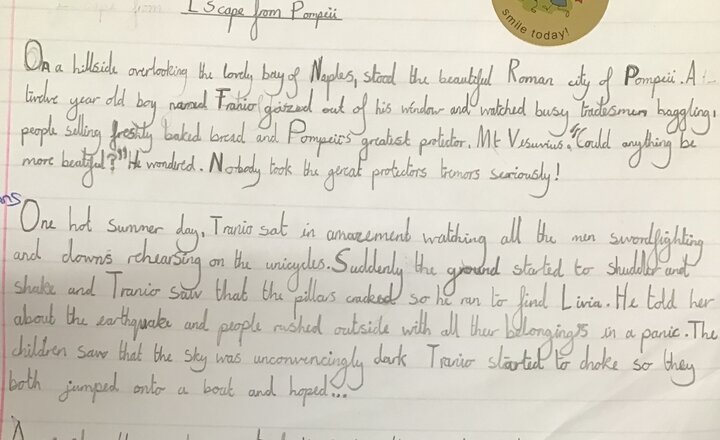 Escape from Pompeii
smile today!
On a hillside overlooking the lovely bay of Naples, stood the beautiful Roman city of Pompeii. A
twelve year old boy named Tranio gazed out of his window and watched busy tradesmen haggling,
people selling freshly baked bread and Pompeii's greatest protector, Mt Vesuvius. "Could anything be
more beatiful?" He wondired. Nobody took the gereat protectors tremors seriously!
One hot summer day, Tranio sat in amazement watching all the men swordfighting
and clowns rehearsing on the unicycles. Suddenly the ground started to shudder and
shake and Tranio saw that the pillars cracked so he ran to find Livia. He told her
about the earthquake and people rushed outside with all their belongings in a panic. The
children saw that the sky was unconvincingly dark Tranio started to choke so they
both jumped onto a boat and hoped...